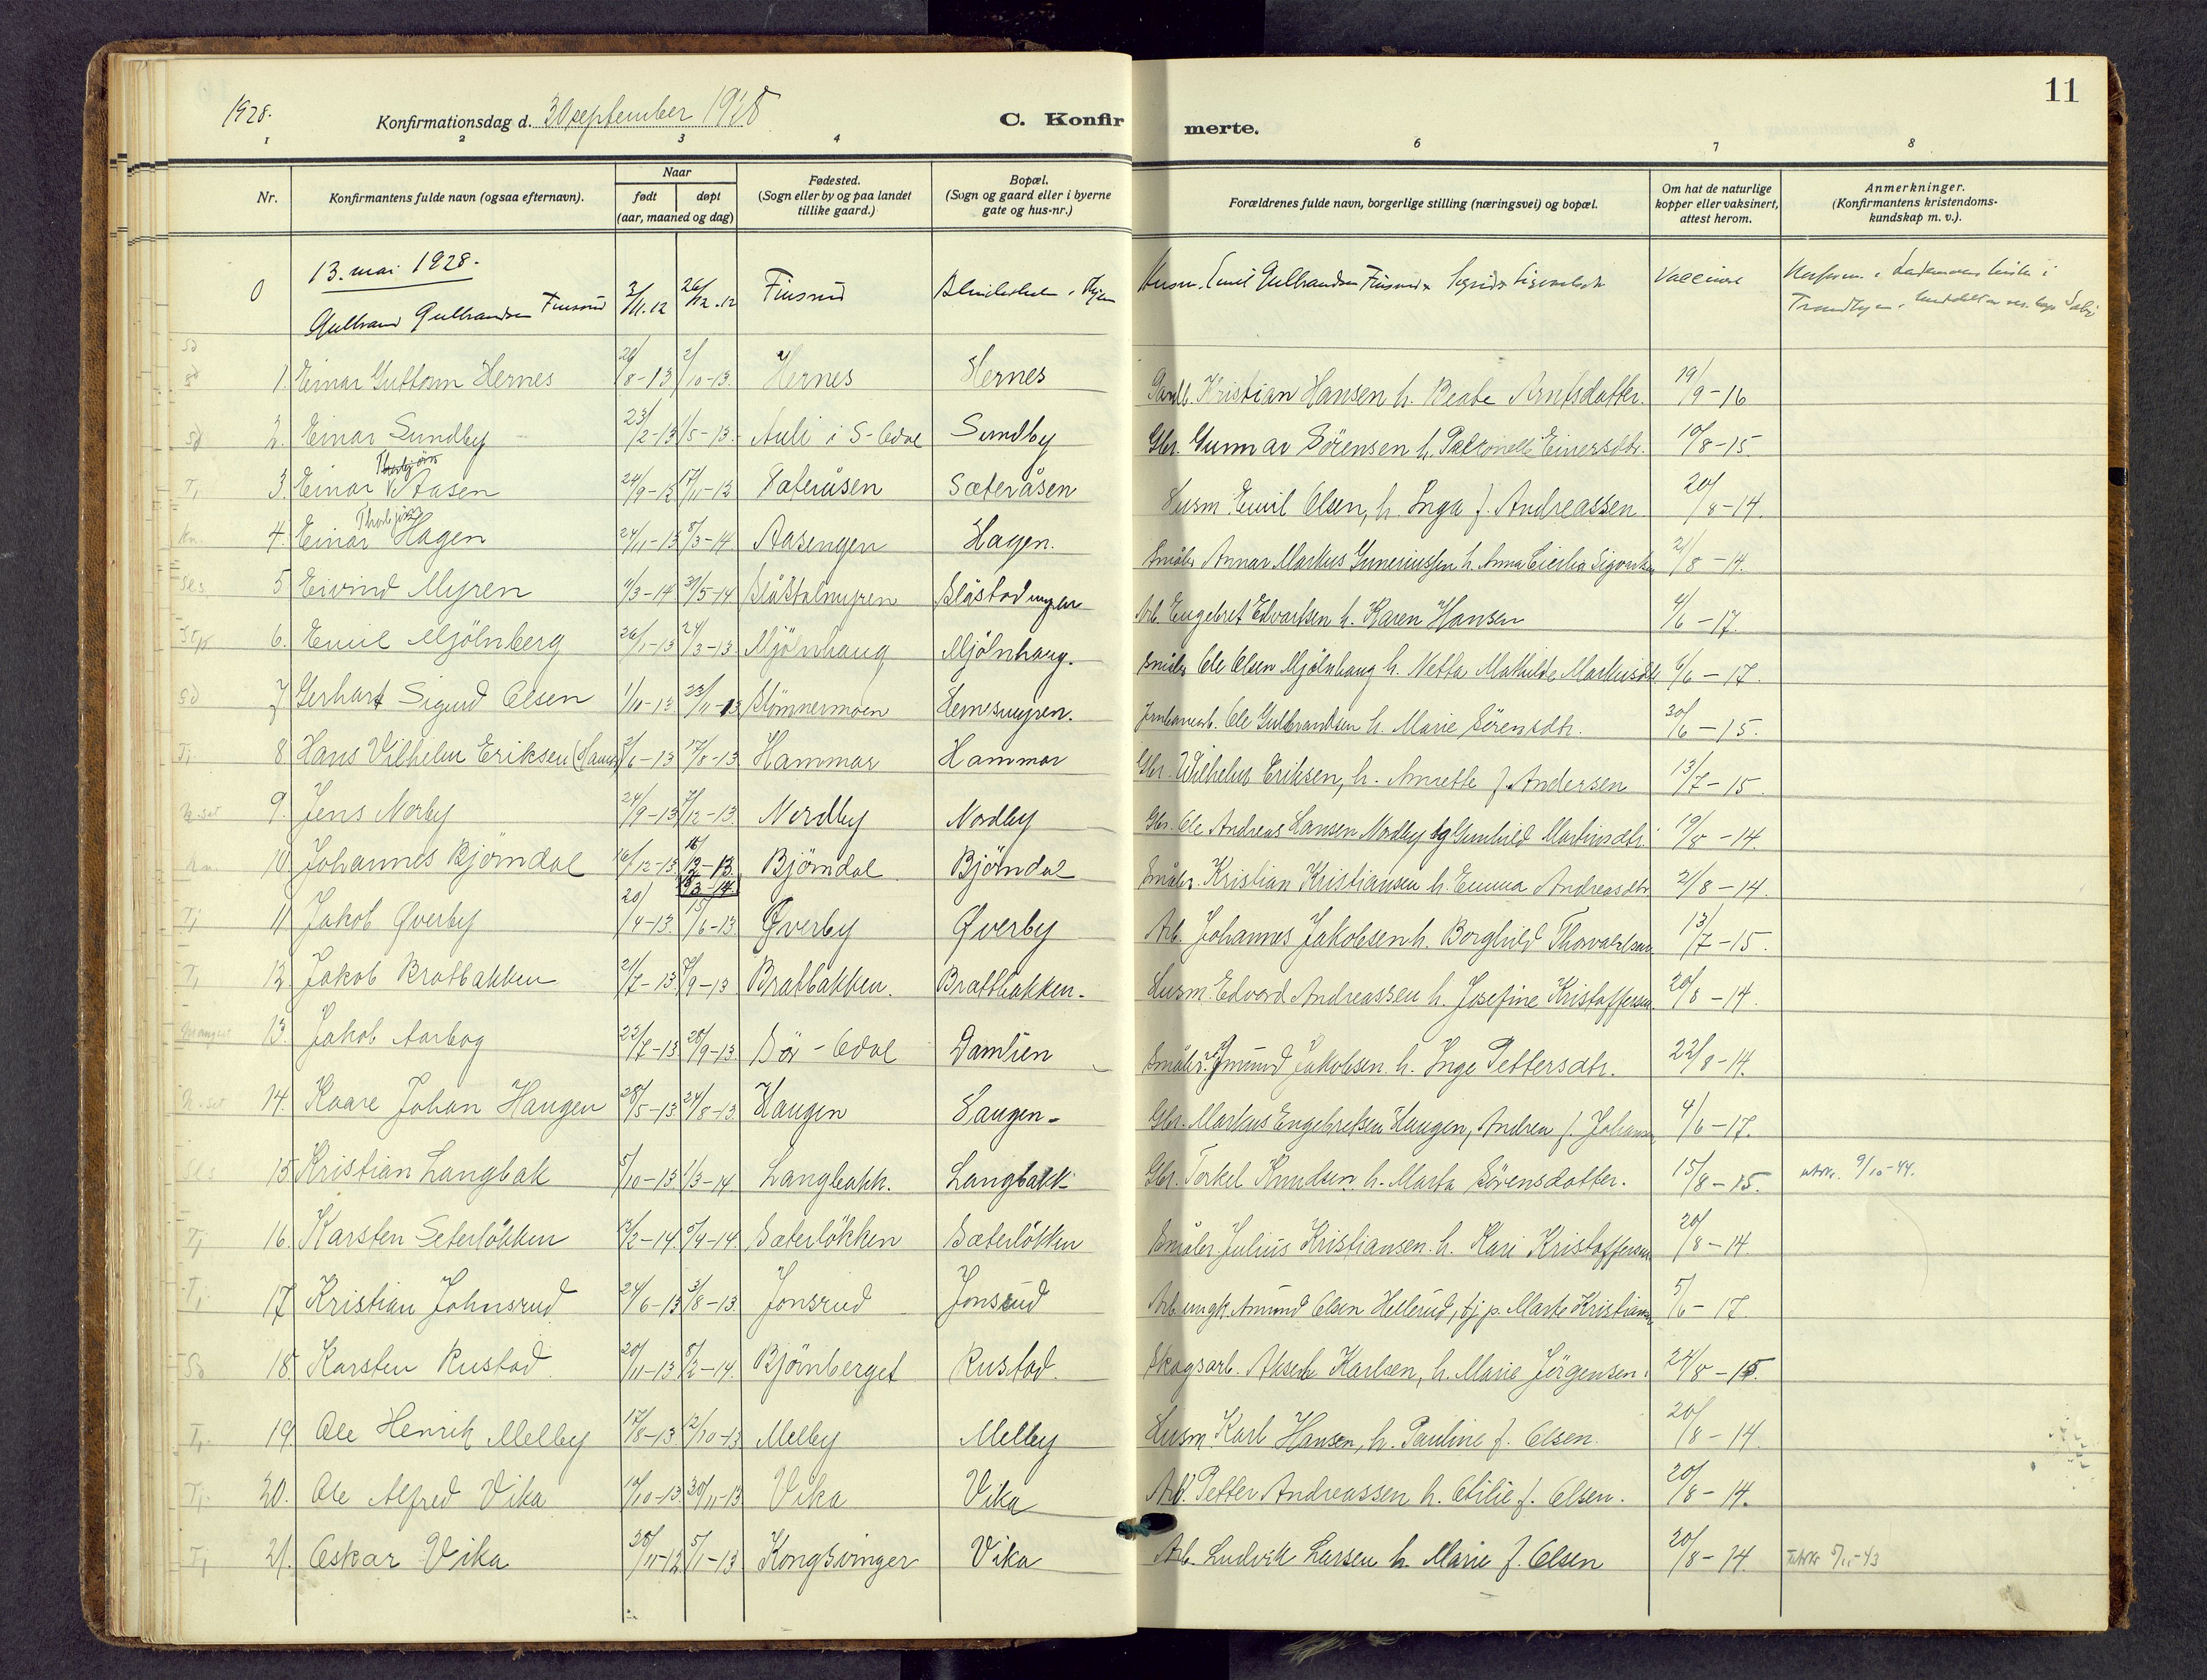 11
1928.
Konfirmationsdag d. 30 september 1928
C. Konfirmerte.
1 2 3 4 6 7 8
Nr.
Konfirmantens fulde navn (ogsaa efternavn).
Naar
født døpt
(aar, maaned og dag)
Fødested.
(Sogn eller by og paa landet
tillike gaard.)
Bopæl.
(Sogn og gaard eller i byerne
gate og hus-nr.)
Forældrenes fulde navn, borgerlige stilling (næringsvei) og bopæl.
Om hat de naturlige
kopper eller vaksinert,
attest herom.
Anmerkninger.
(Konfirmantens kristendoms-
kundskap m. v.).
13. mai 1928.
0 Gulbrand Gulbrandsen Finsrud 3/11.12 26/12.12 Finsrud Emil Gulbrandsen Finsrud
1. Einar Guttorm Hernes 8-13 2/10-13. Hernes Hernes Kristian Hansen h. Beate Arntsdatter. 19/9-16
2. Einar Sundby 23/2-13 1/5-13. Auli i S-Odal Sundby Gbr. Gunnar Sörensen h. Petronelle Einersdtr. 10/8-15
3. Einar Thorbjörn Aasen 24/9-13 17/11-13 Sæteråsen Sæteråsen Husm. Emil Olsen, h. Inga f. Andreassen 20/8-14.
4. Einar Thorbjörn Hagen 24/11-13 8/3-14 Aasengen Hagen. Småbr. Annar Markus h. Anna 21/8-14.
5 Eivind Myren 11/3-14 31/5-14 Blåstadmyren Arb. Engebret Edvardsen h. Karen Hansen 4/6-17.
6. Emil Mjölnberg 26/1-13 24/3-13 Mjölnhaug Mjölnhaug. Småbr. Ole Olsen Mjölnhaug h. Netta Mathilde Markusdtr. 6/6-17.
7 Gerhart Sigurd Olsen 1/10-13 23/11-13 Hernesmyren. Jernbanearb. Ole Gulbrandsen h. Marie Sörensdtr. 30/6-15.
8 Hans Vilhelm Eriksen 6-13 17/8-13 Hammar Hammar Gbr. Wilhelm Eriksen, h. Annette f. Andersen 13/7-15.
9. Jens Norby 24/9-13 7/12-13. Nordby Nordby Gbr. Ole Andreas Larsen Nordby og Gunhild Martinsdtr. 19/8-14.
10 Johannes Bjørndal 16/12-13 Bjørndal Bjørndal Småbr. Kristian Kristiansen h. Emma Andreasdtr. 21/8-14.
11 Jakob Øverby 20/4-13. 15/6-13 Øverby Øverby Arb. Johannes Jakobsen h. Borghild Thorvaldsen 13/7-15.
12 Jakob Bratbakken 21/7-13. 7/9-13 Bratbakken. Bratbakken. Husm. Edvard Andreassen h. Josefine Kristoffersen. 20/8-14.
13. Jakob Aarbog 22/7-13 28/9-13 Sör-Odal Damlien Småbr. Amund Jakobsen h. Inge Pettersdtr. 22/8-14.
14. Kaare Johan Haugen 28/5-13 24/8-13 Haugen Haugen Gbr. Markus Engebretsen Haugen, Andrea f. Johansen 4/6-17.
15 Kristian Langbak 5/10-13 1/3-14 Langbakk. Langbakk Gbr. Torkel Knudsen h. Marta Sörensdatter. 15/8-15. utskr. 9/10-44.
16. Karsten Seterlökken 2-14. 5/4-14 Sæterlökken Sæterlökken Småbr. Julius Kristiansen h. Kari Kristoffersen 20/8-14
17 Kristian Johnsrud 24/6-13 3/8-13. Jonsrud Jonsrud Arb. ungk. Amund Olsen Hellerud, tj.p. Marte Kristiansen 5/6-17.
18. Karsten Rustad 20/11-13 8/2-14. Bjørnberget Rustad. Skogsarb. Aksel Karlsen, h. Marie Jörgensen. 24/8-15.
19. Ole Henrik Melby 17/8-13 12/10-13 Melby Melby Husm. Karl Hansen, h. Pauline f. Olsen. 20/8-14.
20. Ole Alfred Vika 10-13 30/11-13 Vika Vika Arb. Petter Andreassen h. Otilie f. Olsen. 20/8-14.
21. Oskar Vika 11-12 5/1-13 Kongsvinger Vika Arb. Ludvik Larsen h. Marie f. Olsen 20/8-14. 5/11-43